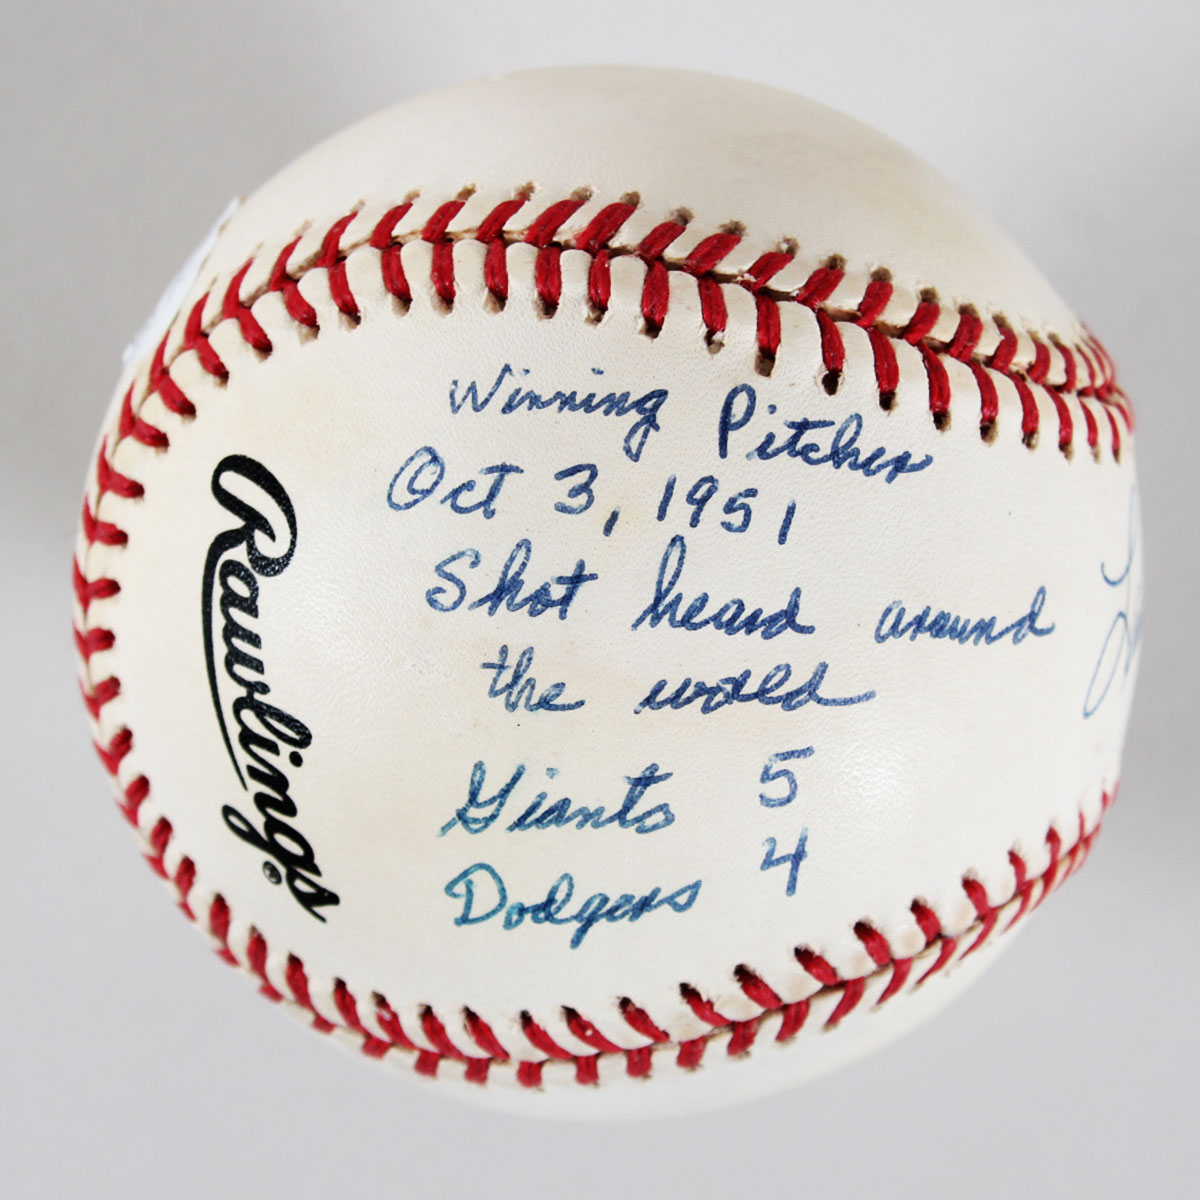 Winning Pitcher
Oct 3, 1951
Shot heard around
the world
Giants 5
Dodgers 4
Rawlings®